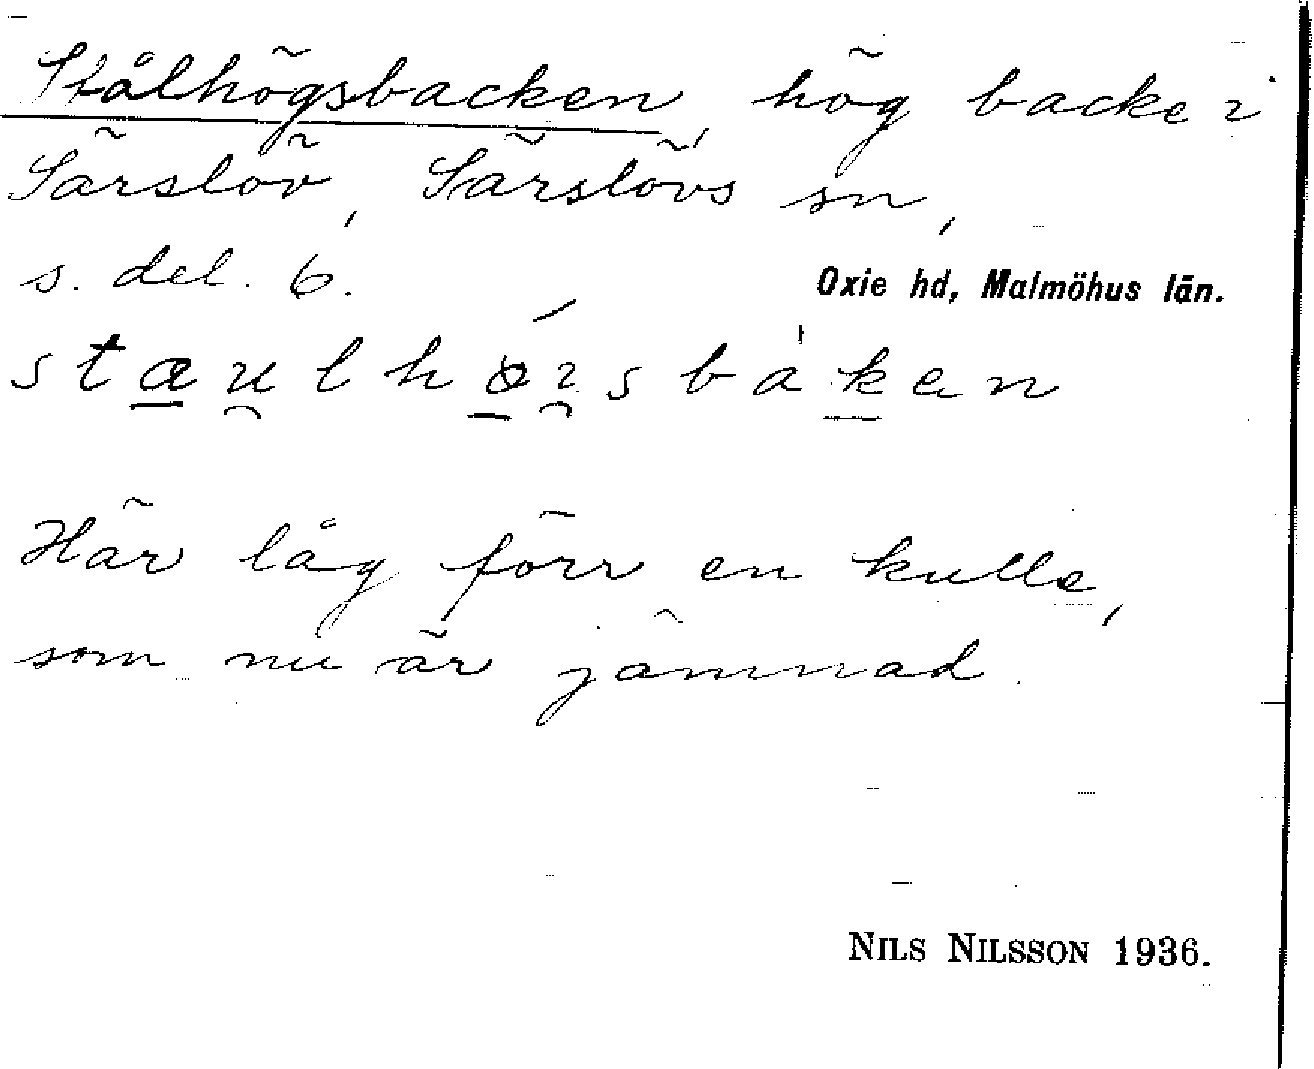 Stålhögsbacken, hög backe i
Särslöv, Särslövs sn,
s. del. 6.
Oxie hd, Malmöhus län.
stæu̯lhøi̯sbàken
Här låg förr en kulle,
som nu är jämnad.
NILS NILSSON 1936.